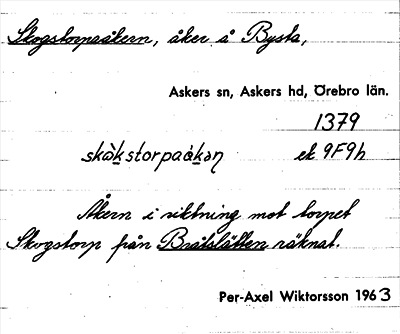 Skogstorpaåkern, åker å Bysta,
Askers sn, Askers hd, Örebro län.
1379
skàk̲storpaåk̲əɳ ek 9F9h
Åkern i riktning mot torpet
Skogstorp från Bråtslätten räknat.
Per-Axel Wiktorsson 1963